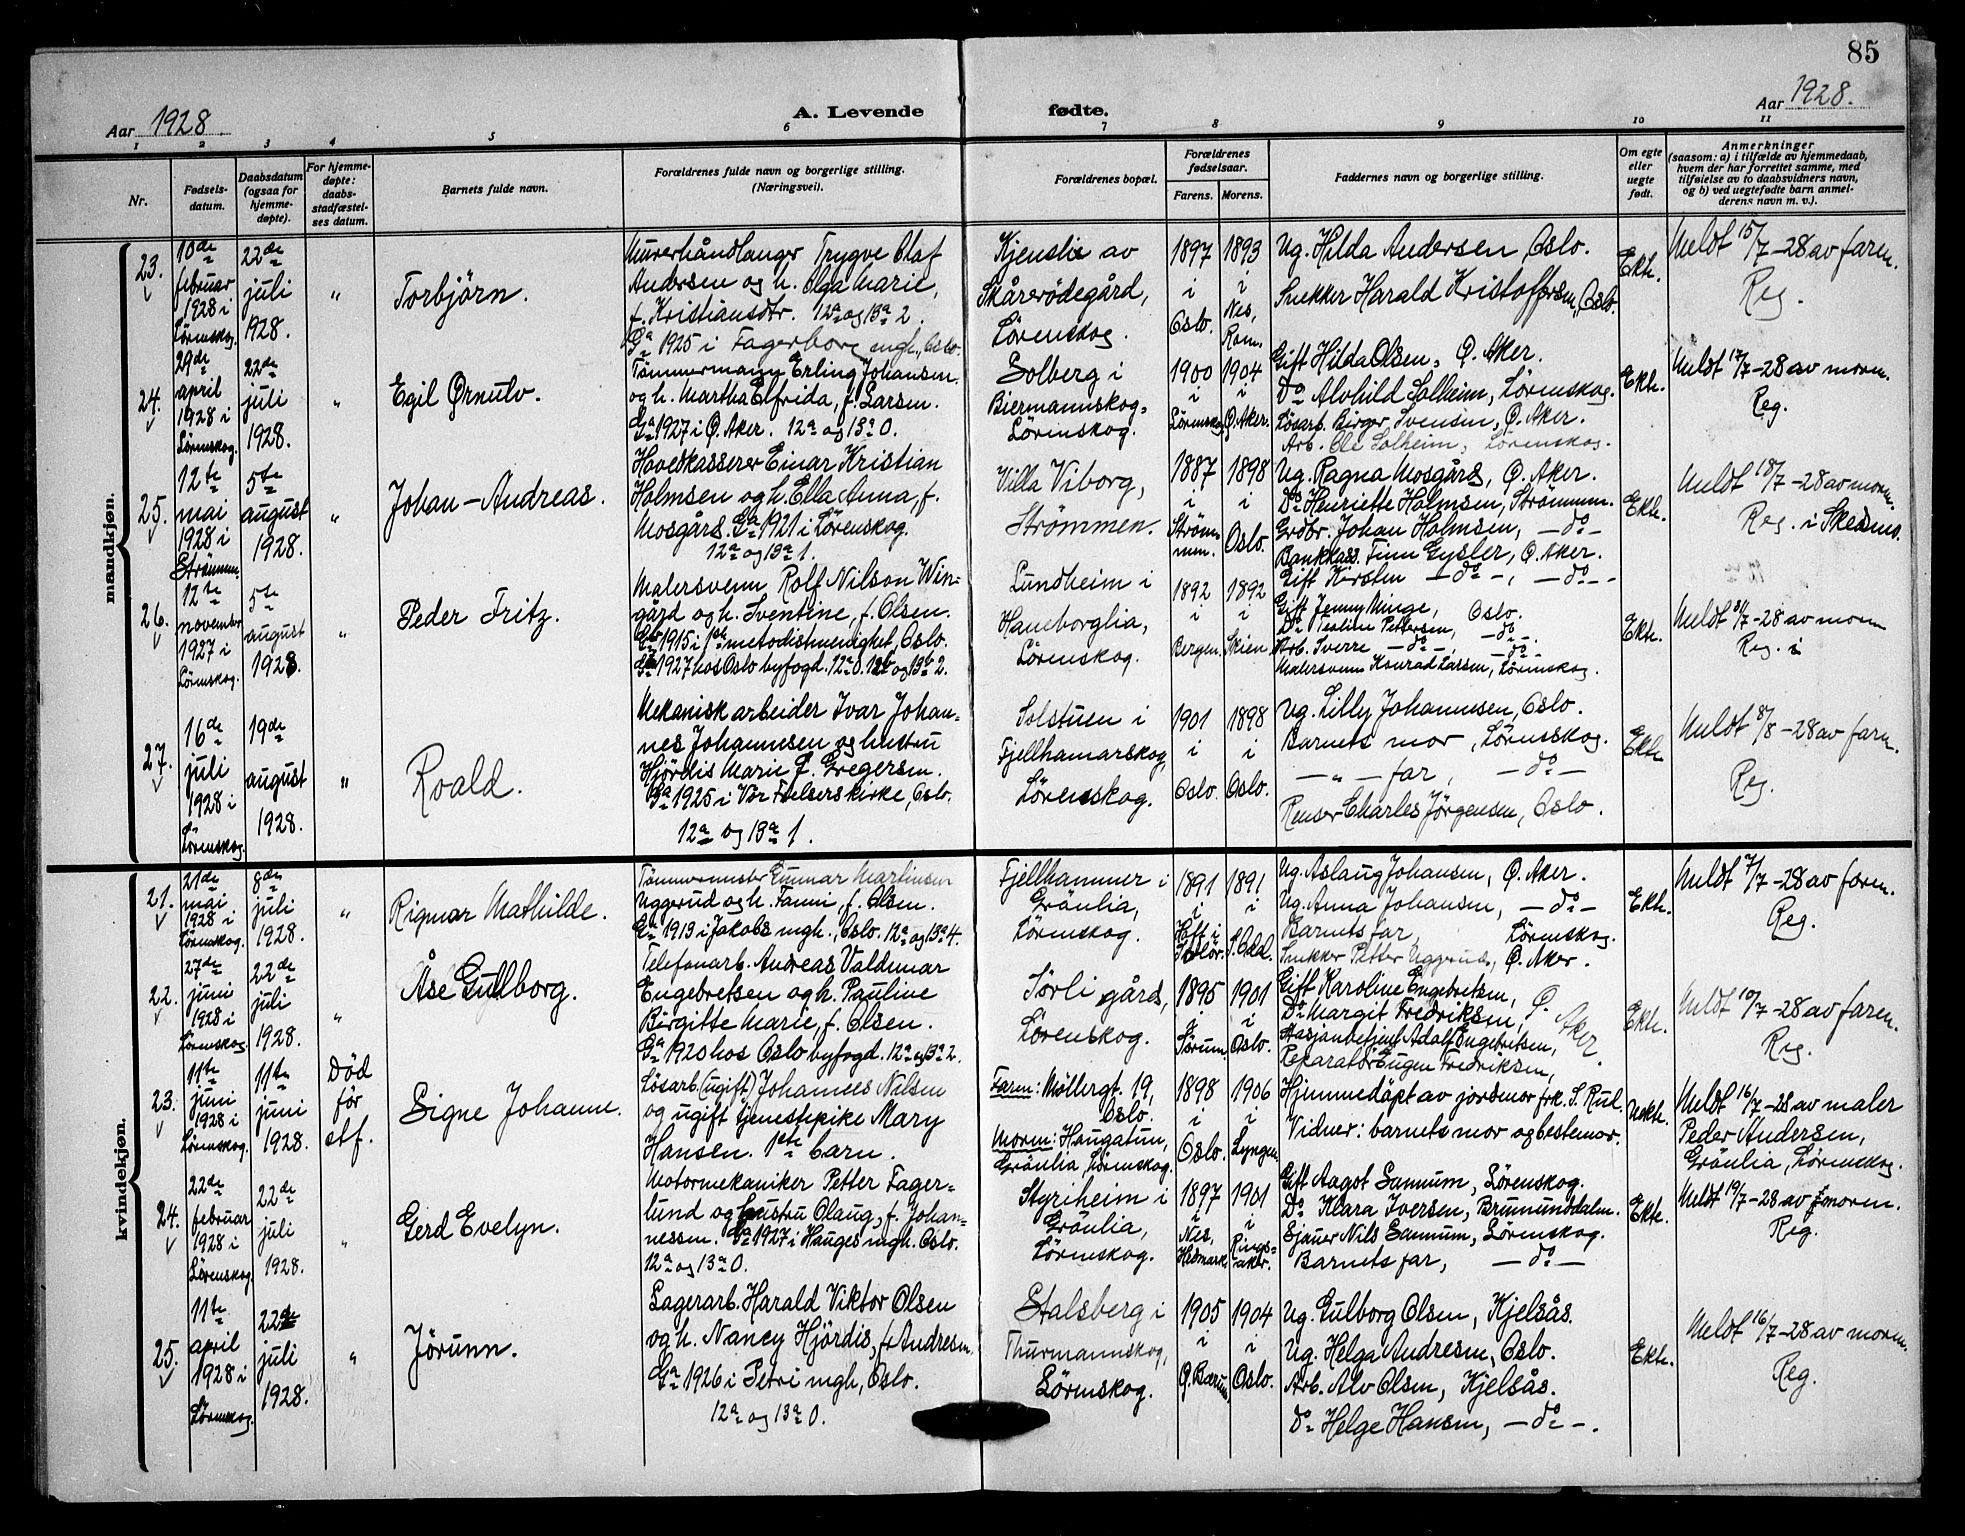 85
Aar 1928.
A. Levende
fødte.
Aar 1928.
1 2 3 4 5 6 7 8 9 10 11
Nr.
Fødsels-
datum.
Daabsdatum
(ogsaa for
hjemme-
døpte).
For hjemme-
døpte:
daabs
stadfæstel-
ses datum.
Barnets fulde navn.
Forældrenes fulde navn og borgerlige stilling.
(Næringsvei).
Forældrenes bopæl.
Forældrenes
fødselsaar.
Farens. Morens.
Faddernes navn og borgerlige stilling.
Om egte
eller
uegte
født.
Anmerkninger
(saasom: a) i tilfælde av hjemmedaab,
hvem der har forrettet samme, med
tilføielse av to daabsvidners navn,
og b) ved uegtefødte barn anmel-
derens navn m. v.).
mandkjøn.
23.
10de
februar
1928 i
Lørenskog.
22de
juli
1928.
"
Torbjörn.
Murerhåndlanger Trygve Olaf
Andersen og h. Olga Marie,
f. Kristiansdtr. 12a og 13a 2.
Ga 1925 i Fagerborg mgh., Oslo.
Kjenslie av
Skårerödegård,
Lörenskog.
1897
i
Oslo.
1893
i
Nes,
Rom.
Ug. Hilda Andersen Oslo.
Snekker Harald Kristoffersen, Oslo.
Ekte.
Meldt 15/7-28 av faren.
Reg.
24.
29de
april
1928 i
Lörenskog.
22de
juli
1928.
"
Egil Ørnulv.
Tömmermann Erling Johansen
og h. Martha Elfrida, f. Larsen.
Ga 1927 i Ø. Aker. 12a og 13a 0.
Solberg i
Biermannskog,
Lörenskog.
1900
i
Lörenskog
1904
i
Ø. Aker.
Gift Hilda Olsen, Ø. Aker.
Do Alvhild Solheim, Lörenskog.
Lösarb. Birger Svensen, Ø. Aker.
Arb. Ole Solheim, Lörenskog.
Ekte.
Meldt 17/7-28 av moren.
Reg.
25.
12te
mai
1928 i
Strömmen.
5te
august
1928.
"
Johan-Andreas.
Hovedkasserer Einar Kristian
Holmsen og h. Ella Anna, f.
Mosgård. Ga 1921 i Lörenskog.
12a og 13a 1.
Villa Viborg,
Strömmen.
1887
i
Ström-
men.
1898
i
Oslo.
Ug. Ragna Mosgård, Ø. Aker.
Do Henriette Holmsen, Strömmen.
Grdbr. Johan Holmsen, -do-
Bankkass. Finn Gysler, Ø. Aker.
Gift Kirsten -do-, -do-
Ekte.
Meldt 18/7-28 av moren.
Reg. i Skedsmo.
26.
12te
november
1927 i
Lörenskog.
5te
august
1928.
"
Peder Fritz.
Malersvenn Rolf Nilson Win-
gård og h. Sventine, f. Olsen.
Gb 1915 i 1ste metodistmenighet, Oslo.
Ga 1927 hos Oslo byfogd. 12a 0. 12b og 13b 2.
Lundheim i
Haneborglia,
Lörenskog.
1892
i
Bergen.
1892
i
Skien.
Gift Jenny Minge, Oslo.
Do Pettersen, -do-.
Arb. Sverre -do-, -do-.
Malersvenn Konrad Larsen, Lörenskog.
Ekte.
Meldt 31/7-28 av moren
Reg. i
27.
16de
juli
1928 i
Lörenskog.
19de
august
1928.
"
Roald.
Mekanisk arbeider Ivar Johan-
nes Johannesen og hustru
Hjördis Marie f. Gregersen.
Ga 1925 i Vår Frelsers kirke, Oslo.
12a og 13a 1.
Solstuen i
Fjellhamarskog,
Lörenskog.
1901
i
Oslo.
1898
i
Oslo.
Ug. Lilly Johannesen, Oslo.
Barnets mor, Lörenskog.
-"- far, -do-
Renser Charles Jörgensen, Oslo.
Ekte
Meldt 8/8-28 av faren.
Reg.
kvindekjøn.
21.
21de
mai
1928 i
Lörenskog.
8de
juli
1928.
"
Rigmor Mathilde.
Tömmermester Gunnar Martinsen
Uggerud og h. Fanni, f. Olsen.
Ga 1913 i Jakobs mgh., Oslo. 12a og 13a 4.
Fjellhammer i
Gröulia,
Lörenskog.
1891
i
Hoff i
Solör.
1891
i
S. Odal.
Ug. Aslaug Johansen, Ø. Aker.
Ug. Anna Johansen, -do-
Barnets far, Lörenskog.
Snekker Petter Uggerud, Ø. Aker.
Ekte.
Meldt 7/7-28 av faren.
Reg.
22.
27de
juni
1928 i
Lörenskog.
22de
juli
1928.
"
Åse Gullborg.
Telefonarb. Andreas Valdemar
Engebretsen og h. Pauline
Birgitte Marie, f. Olsen.
Ga 1920 hos Oslo byfogd. 12a og 13a 2.
Sörli gård,
Lörenskog.
1895
i
Sörum.
1901
i
Oslo.
Gift Karoline Engebretsen,
Do Margit Fredriksen, Ø. Aker.
Stasjonbetjent Adolf Engebretsen,
Reparatör Eugen Fredriksen,
Ekte.
Meldt 10/7-28 av faren.
Reg.
23.
11te
juni
1928 i
Lörenskog.
11te
juni
1928.
Död
för
stf.
Signe Johanne.
Lösarb. (ugift) Johannes Nilsen
og ugift tjenestepike Mary
Hansen. 1ste barn.
Faren: Möllergt. 19,
Oslo.
Moren: Haugatun,
Gröulia, Lörenskog.
1898
i
Oslo.
1906
i
Lyngen.
Hjemmedöpt av jordmor frk. S. Rul.
Vidner: barnets mor og bestemor.
Uekte.
Meldt 16/7-28 av maler
Peder Andersen,
Gröulia, Lörenskog.
24.
22de
februar
1928 i
Lörenskog.
22de
juli
1928.
"
Gerd Evelyn.
Motormekaniker Petter Fager-
lund og hustru Olaug, f. Johan-
nessen. Ga 1927 i Hauges mgh. Oslo.
12a og 13a 0.
Styriheim i
Gröulia,
Lörenskog.
1897
i
Nes,
Hedmark.
1901
i
Rings-
aker.
Gift Aagot Sannum, Lörenskog.
Do Klara Iversen, Brumunddalen.
Sjauer Nils Sannum, Lörenskog.
Barnets far, -do-
Ekte.
Meldt 19/7-28 av moren.
Reg.
25.
11te
april
1928 i
Lörenskog.
22de
juli
1928.
"
Jörunn.
Lagerarb. Harald Viktor Olsen
og h. Nancy Hjördis, f. Andresen.
Ga 1926 i Petri mgh, Oslo.
12a og 13a 0.
Stalsberg i
Thurmannskog,
Lörenskog.
1905
i
Ø. Bærum
1904
i
Oslo.
Ug. Gulborg Olsen, Kjelsås.
Ug. Helga Andresen, Oslo.
Arb. Alv Olsen, Kjelsås.
Do Helge Hansen, -do-.
Ekte.
Meldt 16/7-28 av moren.
Reg.